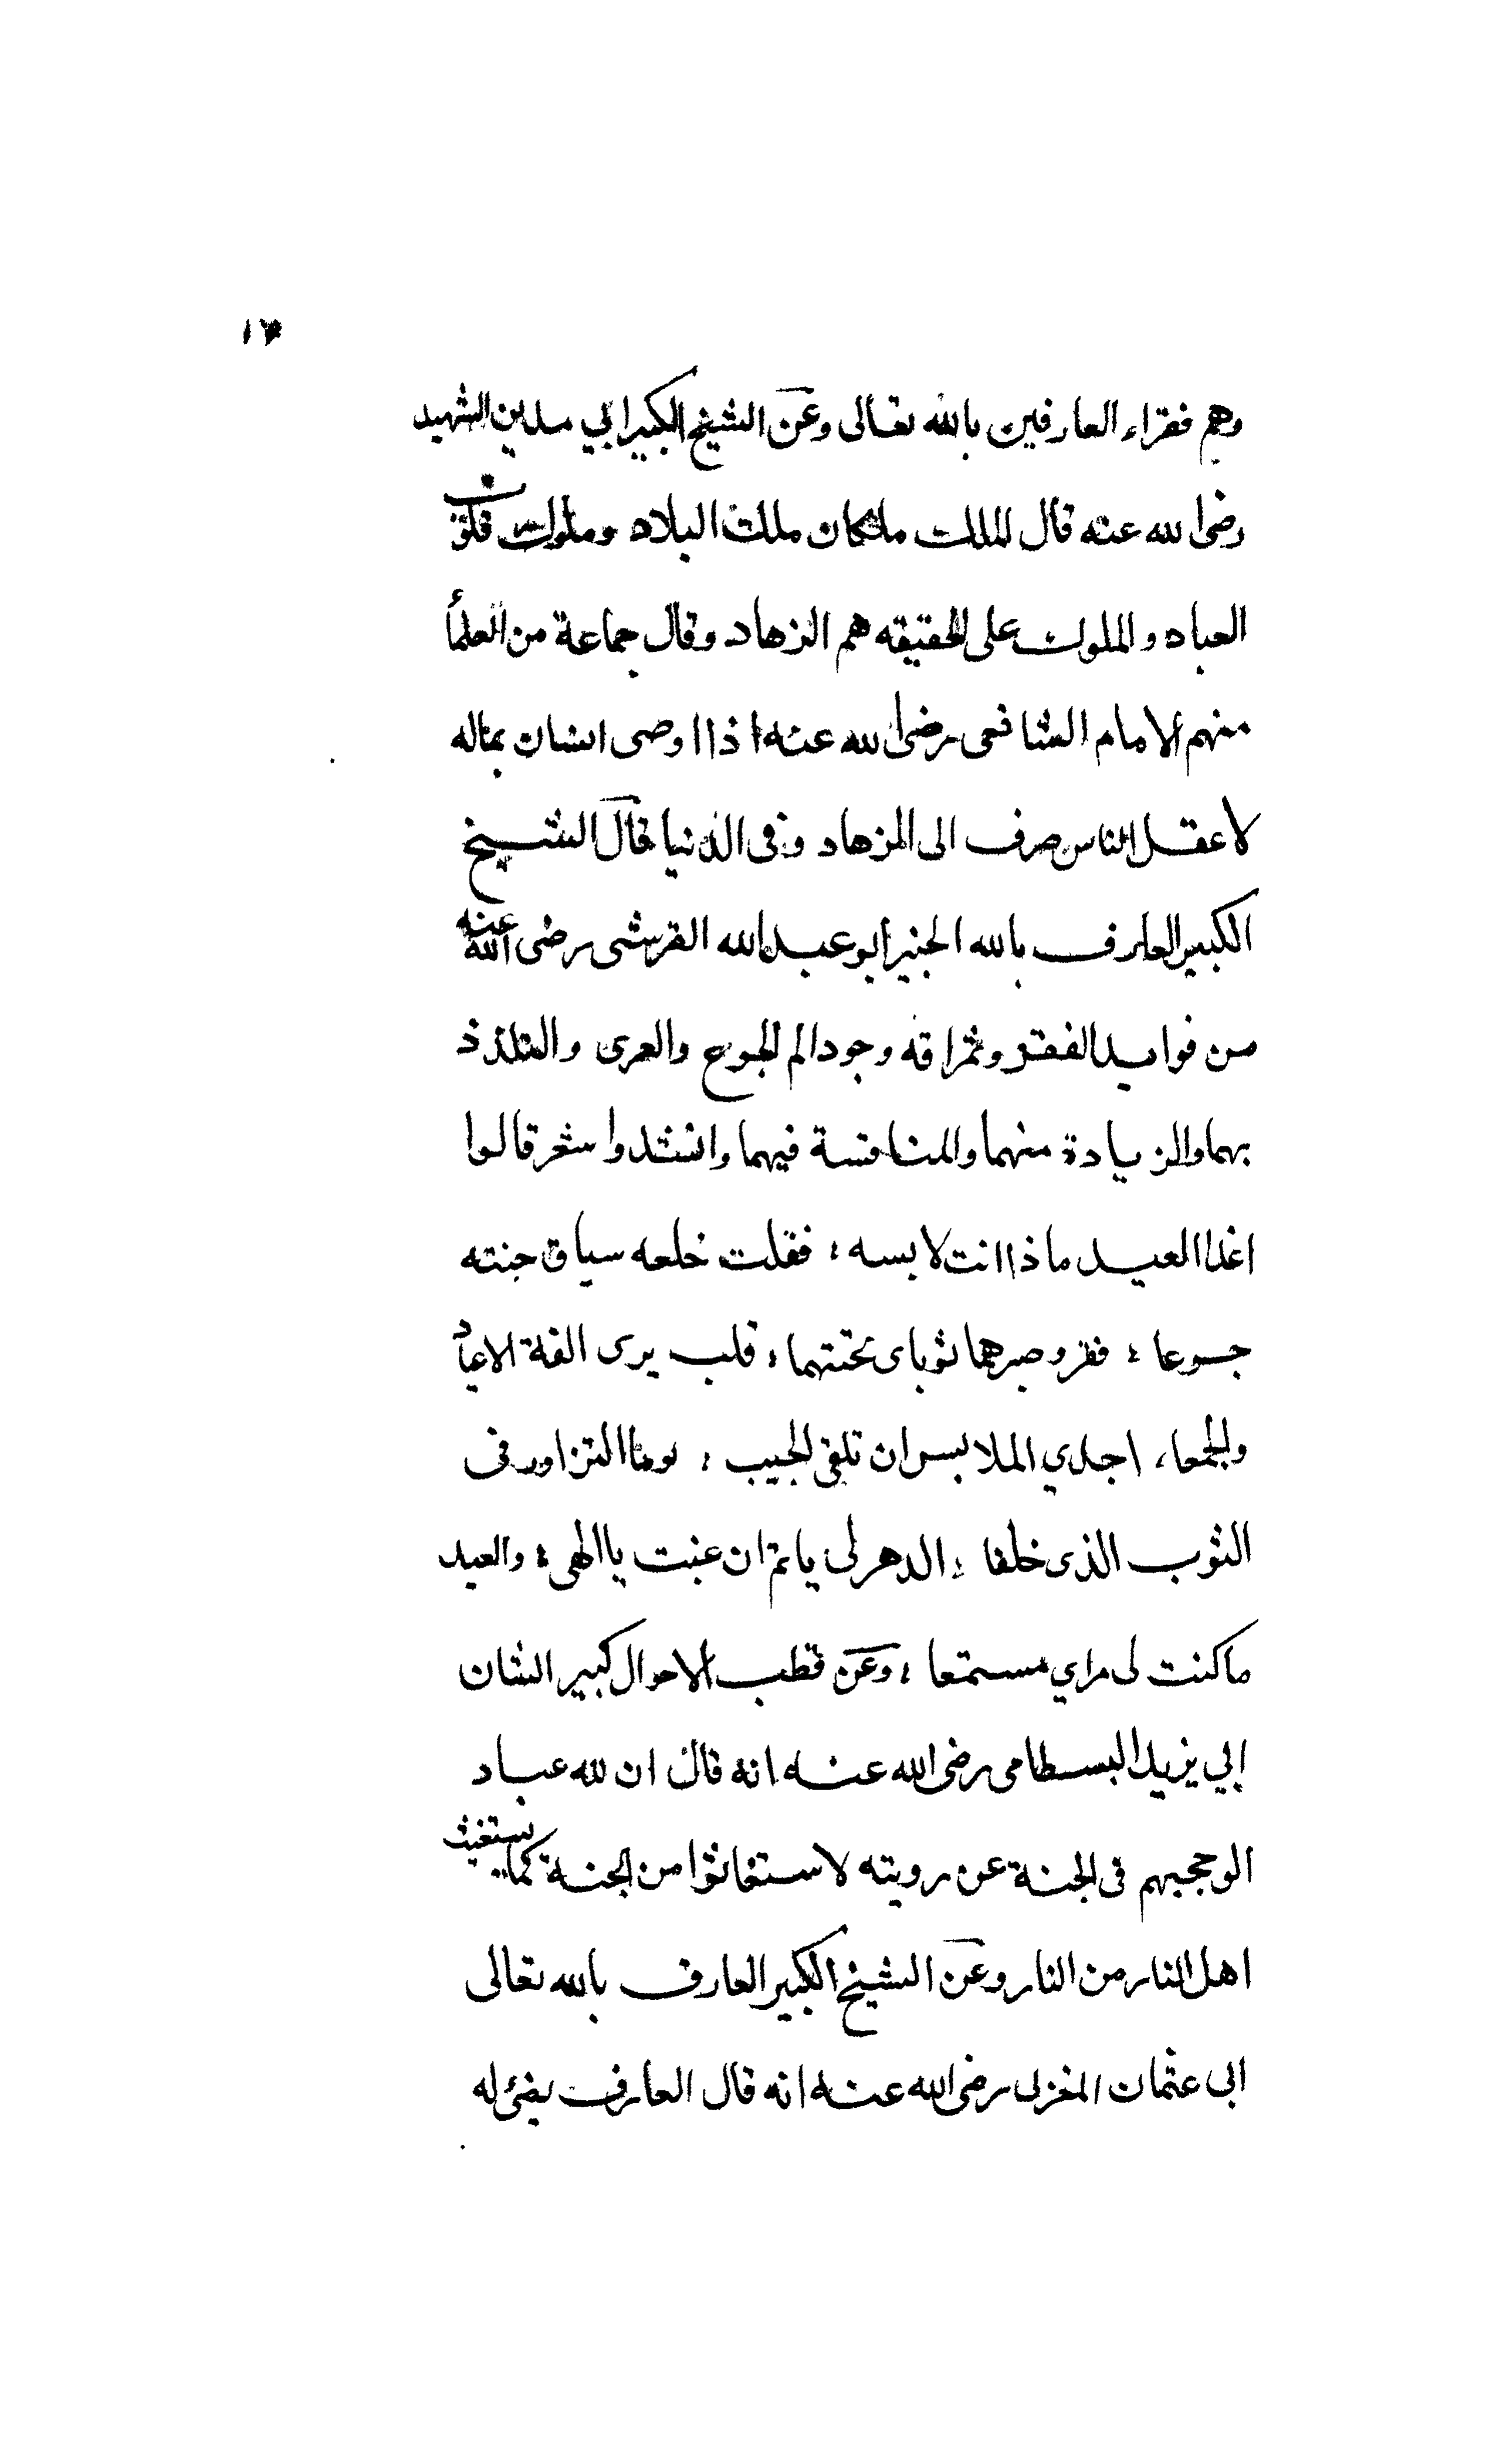 ١٣
وهم فقراء العارفين بالله تعالى وعن الشيخ الكبير ابي مدين الشهيد
رضى الله عنه قال الملك ملكان ملك البلاد وملوك قلوب
العباد والملوك على الحقيقه هم الزهاد وقال جماعة من العلمأ
منهم الامام الشافعى رضى الله عنه اذا اوصى انسان بماله
لاعقل الناس صرف الى الزهاد وفى الدنيا قال الشيخ
الكبير العارف بالله الجنير ابو عبد الله القرشى رضى الله عنه
من فوايد الفقر وثمراته وجود الم الجوع والعرى والتلذذ
بهما والزيادة منهما والمنافسة فيهما وانشدوا شعر قالوا
اغدا العيد ماذا انت لابسه ؛ فقلت خلعه ساق جنته
جوعا ؛ فقر وصبر هما ثوباى تحتهما ؛ قلب يرى الفة الاعياد
والجمعا ، اجدي الملابس ان تلقى الحبيب ؛ يوم التزاور فى
الثوب الذى خلفا ؛ الدهر لى ياتم ان غبت ياالهى ؛ والعيد
ما كنت لى مراي مستمعا ؛ وعن قطب الاحوال كبير الشان
ابي يزيد البسطامى رضى الله عنه انه قال ان لله عباد
الوحجبهم فى الجنة عن رويته لاستغاثوا من الجنة كما يستغيث
اهل النار من النار وعن الشيخ الكبير العارف بالله تعالى
ابى عثمان المغربى رضى الله عنه انه قال العارف يضئ له